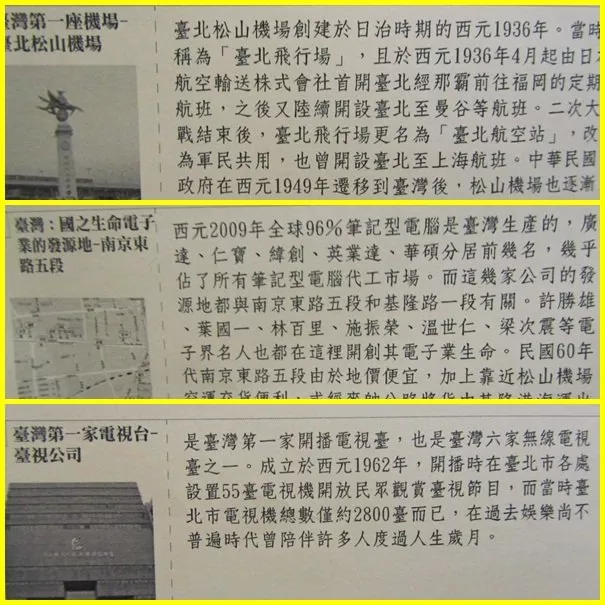 臺灣第一座機場-
臺北松山機場
臺北松山機場創建於日治時期的西元1936年。當時
稱為「臺北飛行場」，且於西元1936年4月起由日本
航空輸送株式會社首開臺北經那霸前往福岡的定期
航班，之後又陸續開設臺北至曼谷等航班。二次大
戰結束後，臺北飛行場更名為「臺北航空站」，改
為軍民共用，也曾開設臺北至上海航班。中華民國
政府在西元1949年遷移到臺灣後，松山機場也逐漸
臺灣：國之生命電子
業的發源地-南京東
路五段
西元2009年全球96%筆記型電腦是臺灣生產的，廣
達、仁寶、緯創、英業達、華碩分居前幾名，幾乎
佔了所有筆記型電腦代工市場。而這幾家公司的發
源地都與南京東路五段和基隆路一段有關。許勝雄
、葉國一、林百里、施振榮、溫世仁、梁次震等電
子界名人也都在這裡開創其電子業生命。民國60年
代南京東路五段由於地價便宜，加上靠近松山機場
臺灣第一家電視台-
臺視公司
是臺灣第一家開播電視臺，也是臺灣六家無線電視
臺之一。成立於西元1962年，開播時在臺北市各處
設置55臺電視機開放民眾觀賞臺視節目，而當時臺
北市電視機總數僅約2800臺而已，在過去娛樂尚不
普遍時代曾陪伴許多人度過人生歲月。